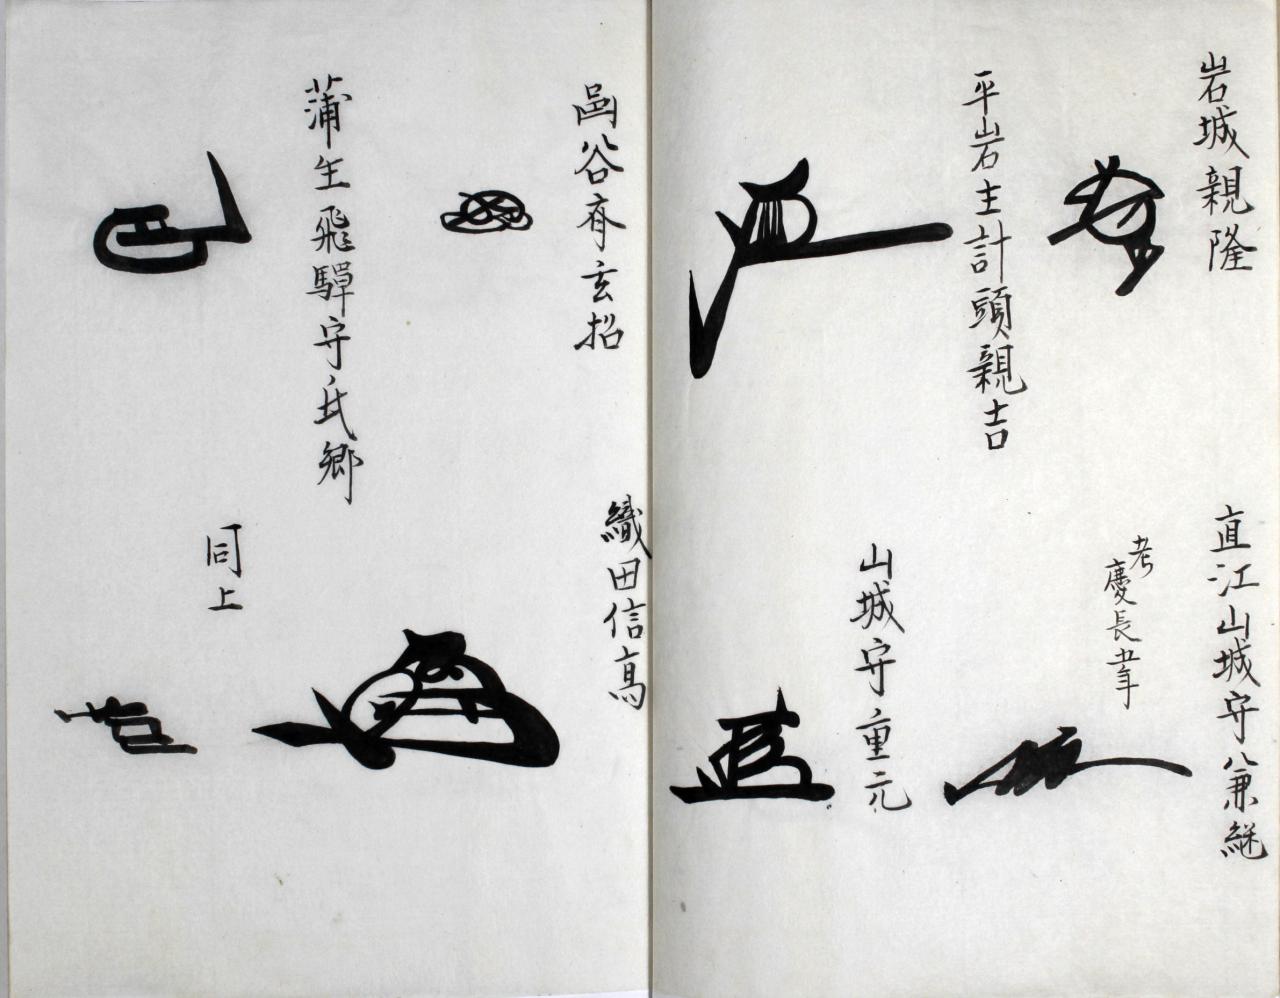 岩城親隆
直江山城守兼継
考
慶長
平岩主計頭親吉
山城守重元
谷斎玄招
織田信高
蒲生飛騨守氏郷
同上